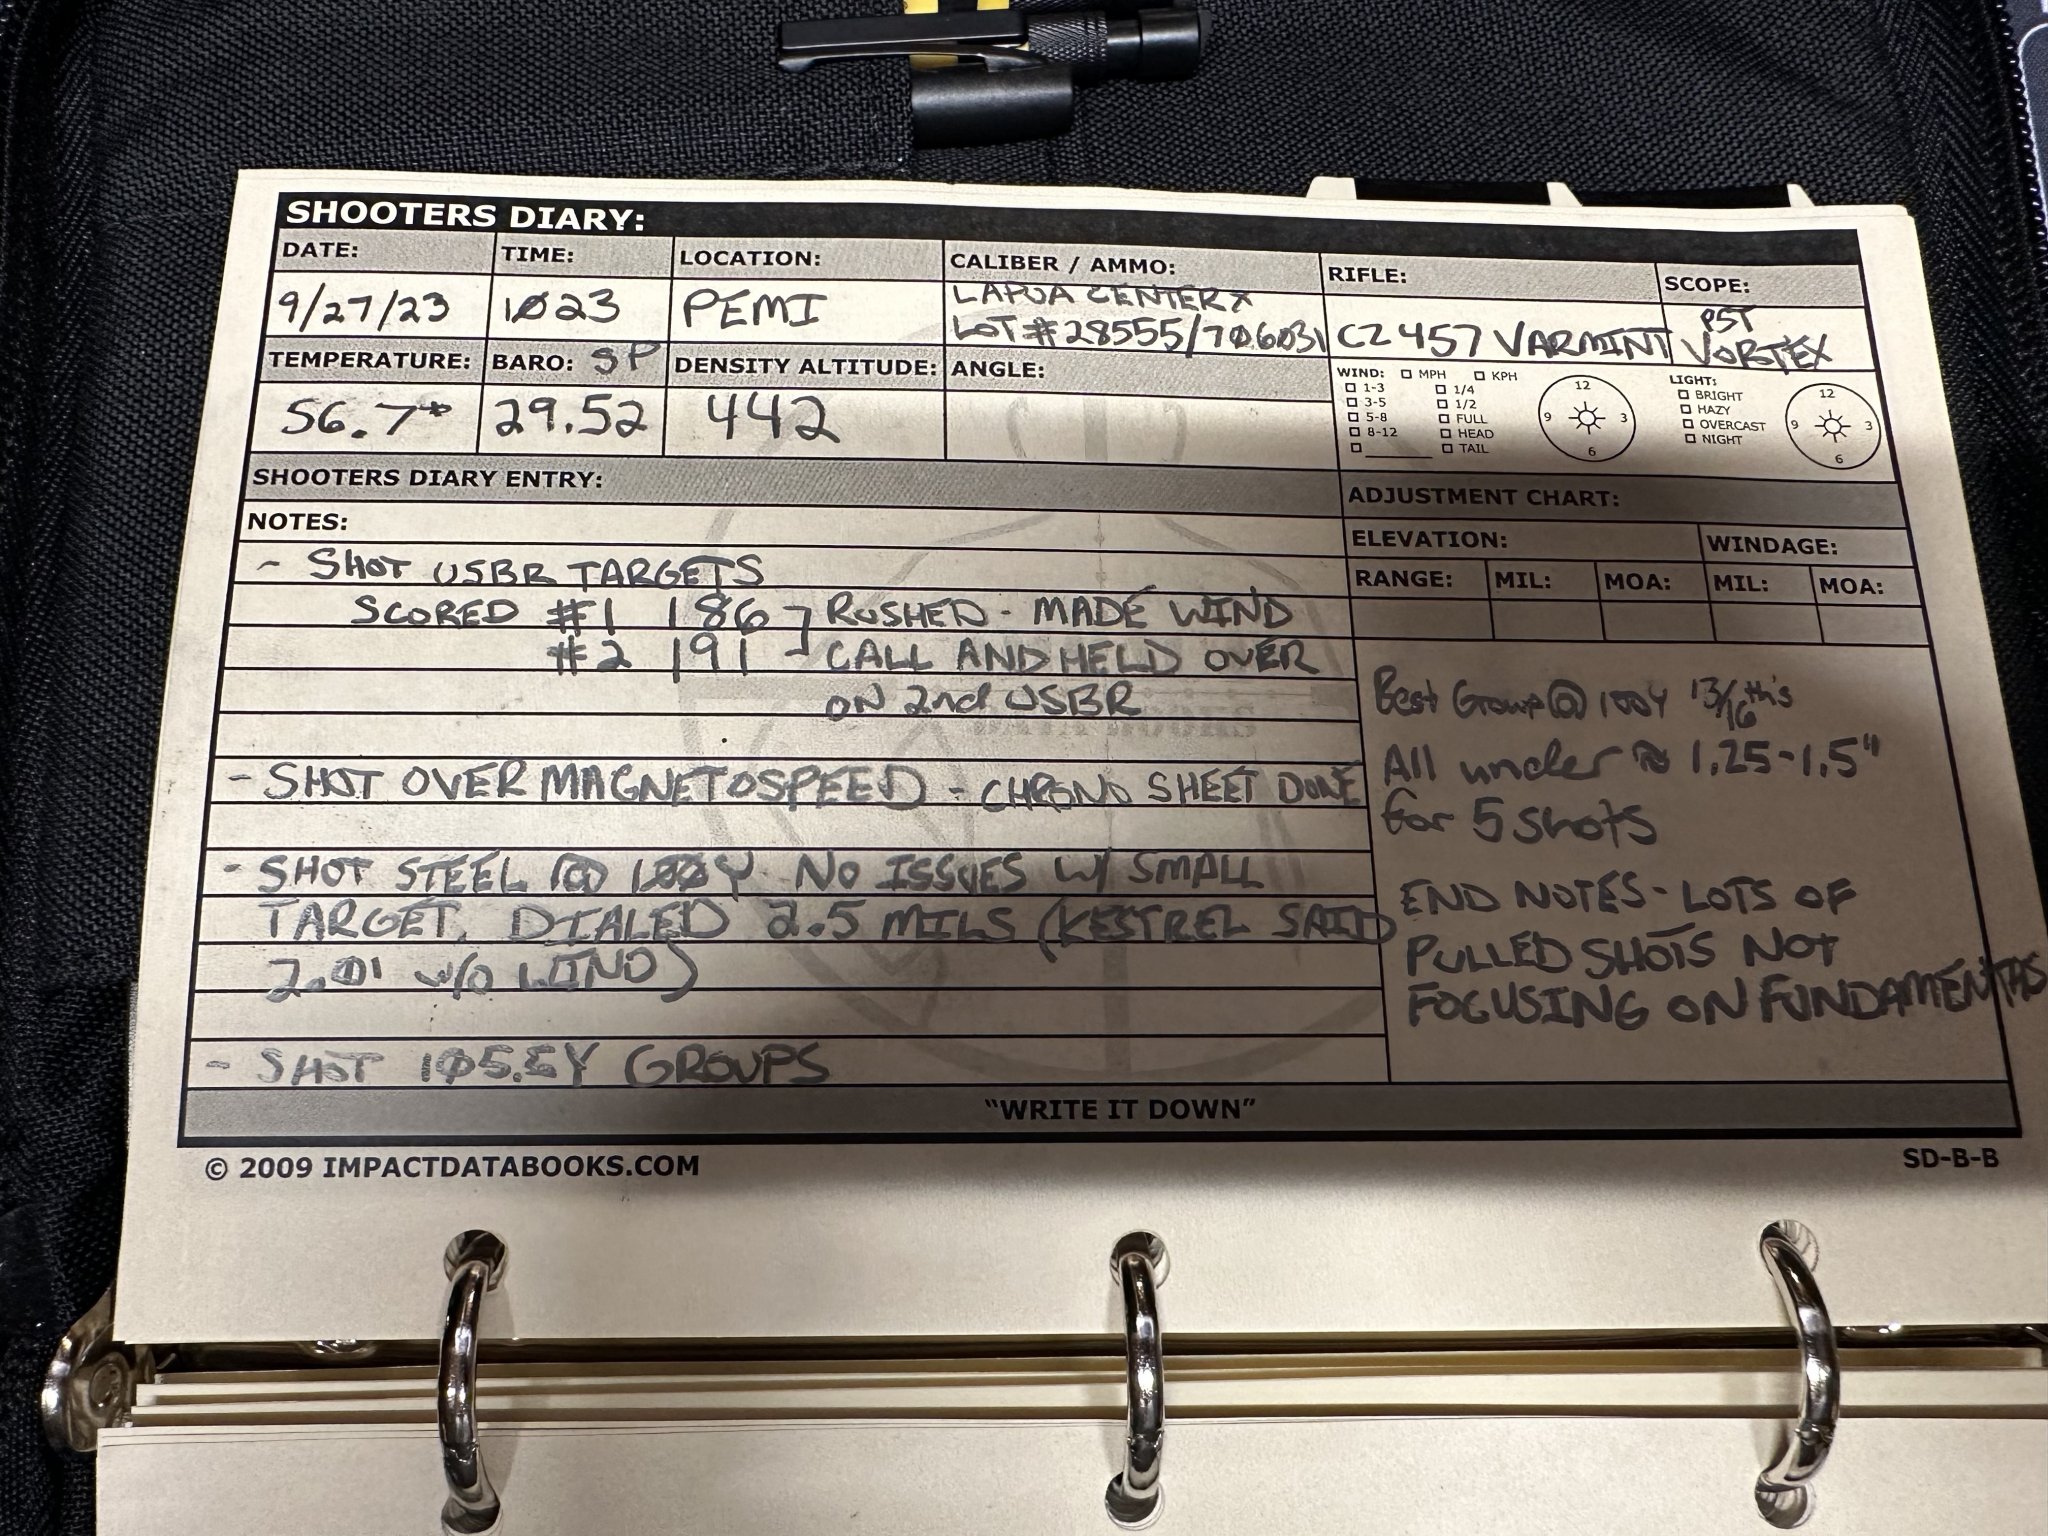 SHOOTERS DIARY:
DATE: TIME: LOCATION: CALIBER / AMMO: RIFLE: SCOPE:
9/27/23 1023 PEMI LAPUA CENTER X
LOT # 28555/706031 CZ 457 VARMINT PST
VORTEX
TEMPERATURE: BARO: SP DENSITY ALTITUDE: ANGLE:
56.7° 29.52 442
WIND: MPH KPH
1-3 1/4
3-5 1/2
5-8 FULL
8-12 HEAD
TAIL
12
9 3
6
LIGHT:
BRIGHT
HAZY
OVERCAST
NIGHT
12
9 3
6
SHOOTERS DIARY ENTRY:
NOTES:
- SHOT USBR TARGETS
SCORED #1 186 RUSHED - MADE WIND
#2 191 CALL AND HELD OVER
ON 2nd USBR
- SHOT OVER MAGNETOSPEED - CHRONO SHEET DONE
- SHOT STEEL @ 100Y NO ISSUES W/ SMALL
TARGET. DIALED 2.5 MILS (KESTREL SAID
W/O WIND)
- SHOT 105.5Y GROUPS
ADJUSTMENT CHART:
ELEVATION: WINDAGE:
RANGE: MIL: MOA: MIL: MOA:
Best Group @ 100Y 13/16th's
All under ≈ 1.25-1.5"
for 5 shots
END NOTES - LOTS OF
PULLED SHOTS NOT
FOCUSING ON FUNDAMENTALS
"WRITE IT DOWN"
© 2009 IMPACTDATABOOKS.COM SD-B-B